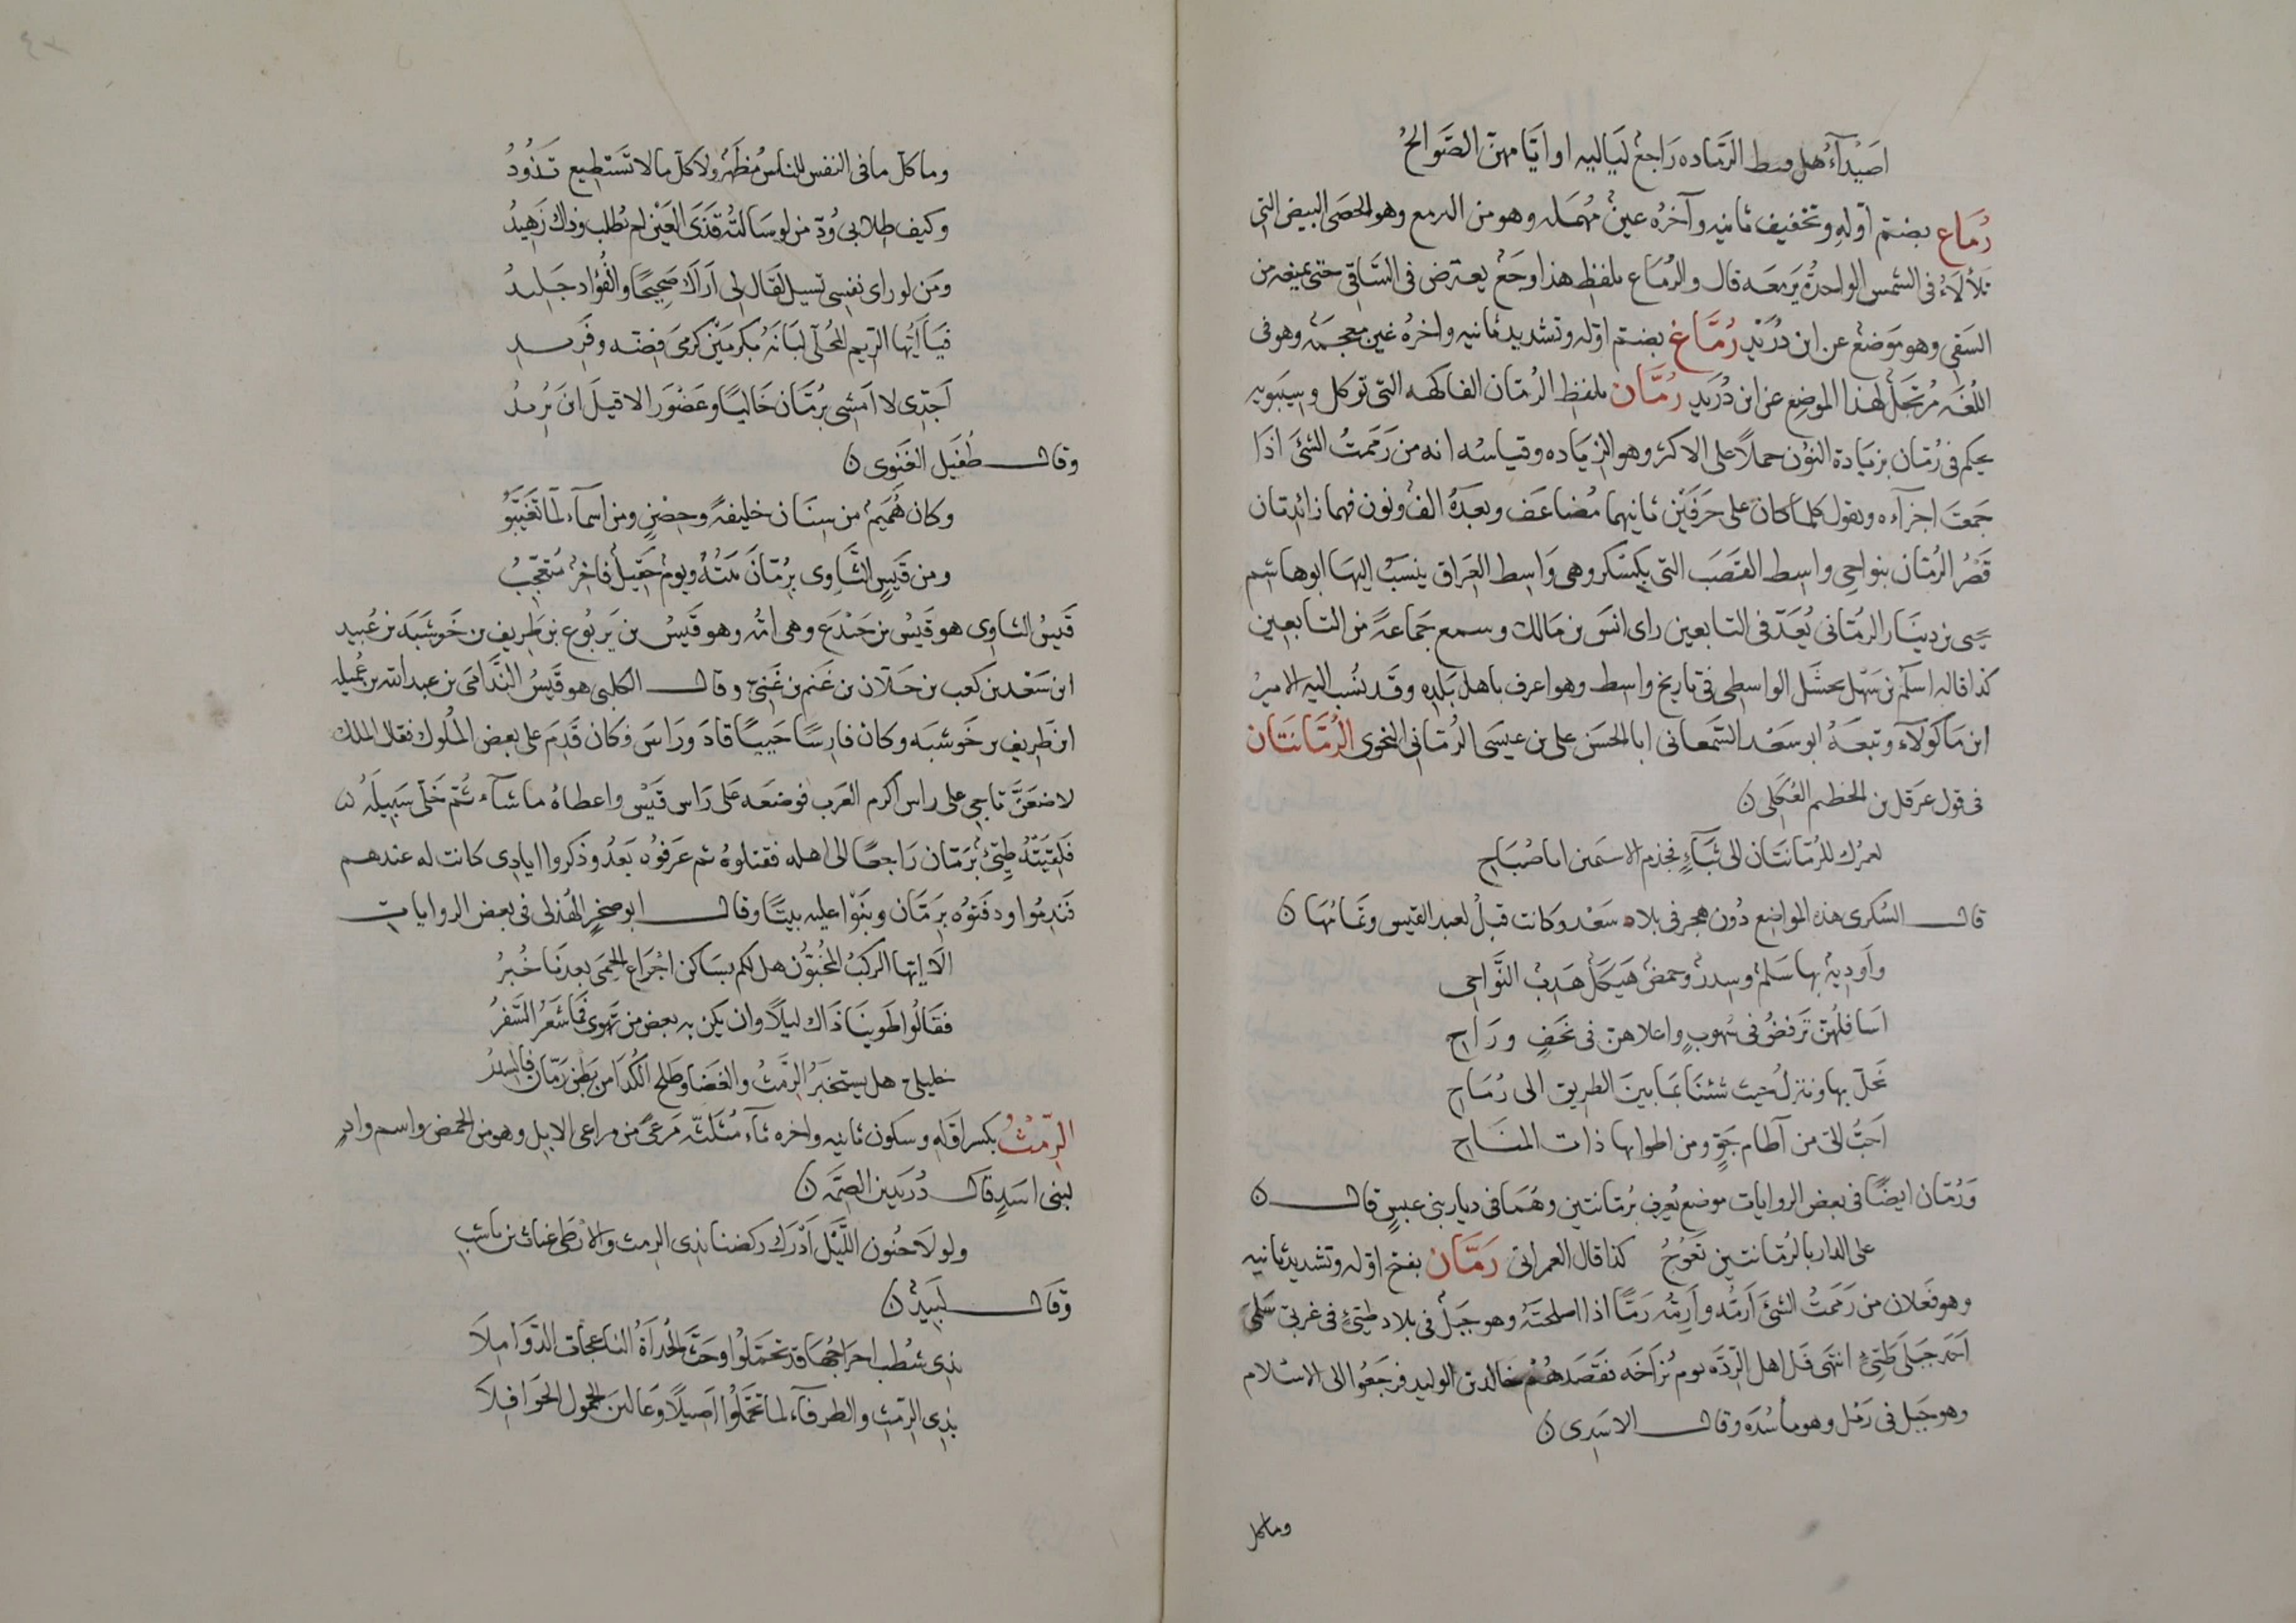 اصَيْدَآءُ هل وسط الرَّمّاده رَاجعٌ لَيَاليه او ايّامهنّ الصَّوالحُ
رُمَاع بضمّ أوّله وتخفيف ثانيه وآخرُه عينٌ مُهمَله وهو من الدمع وهو الحصَى البيض التي
تلألأءُ فى الشمس الواحدةُ يَرمَعه قال والرُمَاع بلفظ هذا وجَعٌ يعترض فى السَّاقى حتى يمنعه من
السَقى وهو مَوضعٌ عن ابن دُرَيْدٍ رُمَّاغ بضمّ اوّله وتشديد ثانيه واخرُه غين معجمه وهو فى
اللُغَه مُرتَجلٌ لهذا الموضِع عن ابن دُرَيدٍ رُمَّان بلفظ الرُمّان الفاكهه التى توكل وسِيبَويه
يحكم فى رُمّان بزيَادة النوُن حملاً على الاكثر وهو الزيَاده وقياسُه انه من رَمَمتُ الشئَ اذَا
جمَعتَ اجزآءه ويقول كلمَا كان على حَرفَيْن ثانيهما مُضاعَف وبعدَهُ الفٌ ونون فهما زائدتان
قَصْرُ الرُمّان بنواحى واسِط القَصَب التى بكسكر وهى وَاسِط العِرَاق ينسَبُ اليَها ابوهاشم
يحيى بن دينَار الرُمّانى يُعَدّ فى التابعين راى انسَ بن مَالك وسمع جَماعةً من التابعين
كذا قاله اسلَم بن سَهْل بحشَل الواسِطى فى تاريخ واسِط وهو اعرف باهل بَلَدِه وقَد نسُب اليه الامير
ابن مَاكُولَآء وتبعَهُ ابو سَعْد السَّمعانى ابا الحسَن على بن عيسَى الرُمّانى النحوى الرُمَّانَتَان
فى قول عرقل بن الخطيم العُكلى ن
لعمرُك للرُمّانتَان الى ثَبآءٍ فحَزم الاسَيمين اما صُبَاح
قالــ السُكرى هذه المواضع دُون هجر فى بلاد سَعْد وكانت قبلُ لعبد القيس وتمامُهَا ن
وأودِيةٌ بها سَلَمٌ وسِدرٌ وحمضٌ هَيكَلٌ هَدِبُ النَّواحى
اسَافلُهنّ تَرفضُّ فى سُهوبٍ واعلاهنّ فى نجَفٍ ورَاح
نحَلّ بها وننزلُ حيث شئنَا بمَا بينَ الطريق الى رُمَاح
احَبُّ الىّ من آطَام جَوٍّ ومن اطوابها ذات المنَاح
وَرُمّان ايضًا فى بعض الروايات موضع يُعرف برُمّانتين وهُمَا فى ديار بنى عبسٍ قالــ ن
على الدار بالرُمّانتَين تعُوجُ كذا قال العمرانى رَمَّان بفتح اوّله وتشديد ثانيه
وهو فَعلان من رَمَمتُ الشئَ اَرمّه واَرِمّه رَمًّا اذا اصلحتَهُ وهو جبَلٌ فى بلاد طيّئٍ فى غربىّ سَلمَى
اَحَد جَبَلَى طيّئٍ انتهَى فَلّ اهل الرّدَّه يوم بُزاخَه فقَصَدهُم خالد بن الوليد فرجَعُوا الى الاسْلام
وهو جَبَل فى رَمْل وهو مأسَدَه وقالــ الاسَدِى ن
وما كل
وما كلّ ما فى النفس للناس مُظهَرٌ ولا كلّ ما لا تَسْتَطِيع تَذُودُ
وكيف طِلابى وُدّ من لو سَالتُه قَذَى العَيْن لم يُطلِب وذاك زَهِيدُ
ومَن لو راى نفسِى تسيل لقَال لى اَرَاكَ صَحِيحًا والفُؤاد جَليدُ
فيَا أيّها الريم المُحلَّى لبَانَهُ بكرمَيْن كَرمَى فِضّه وفَريد
اَجَدّى لا امشى برُمّان خَاليًا وغضْوَر الا قيلَ ابنَ تُريدُ
وقالــ طُفَيل الغَنَوى ن
وكان هُرَيمٌ من سِنَان خليفةً وحِصْنٍ ومن اسمآء لمّا تغَيّبُوا
ومن قَيسٍ الثَّاوى برُمّانَ بَيتُه ويومَ حَقِيلٌ فاخرٌ مُتعَجّبُ
قَيسُ الثاوى هو قَيْس بن جَندَع وهى امّه وهو قَيسُ بن يَربُوع بن طريف بن خَرشَبَه بن عُبيد
ابن سَعْد بن كعب بن حَلّان بن غَنم بن غَنِىّ وقالــ الكلبى هو قَيسُ النَّدَامَى بن عبد الله بن عُميله
ابن طَريف بن خَرشبَه وكان فارِسًا حَبيبًا قادَ ورَاسَ وكان قَدِمَ على بعض المُلوك فقال الملك
لاضعَنَّ تاجى على راس اكرم العَرب فوضعَه عَلى رَاس قَيْس واعطاهُ ما شآء ثُمّ خلّى سَبيلَهُ ن
فَلَقيَتْهُ طَيّئٌ برَمّان رَاجعًا الى اهله فقتلوهُ ثم عَرَفوُه بَعدُ وذكروا ايادى كانت له عندهم
فنَدِمُوا ودفَنوُه برَمّان وبنَوْا عليه بيتًا وقالــ ابوصخرٍ الهُذلى فى بعض الروايات
الَا ايّها الركبُ المُخبّوُن هل لكم بسَاكن اجْرَاع الحِمَى بعدنَا خُبرُ
فقَالُوا طَوينَا ذَاك ليلاً وان يكن به بعض من تهوَى فمَا شعَرَ السَّفرُ
خليلىّ هل يستخبَرُ الرِّمثُ والغَضَا وطلح الكُدَا من بَطن رَمّان فالسِدرُ
الرِّمْثُ بكسر اوّله وسكون ثانيه واخره ثآء مُثلثّه مَرعىً من مراعى الابل وهو من الحمض واسم وادٍ
لبنى اسَدٍ قالــ دُرَيد بن الصِمّه ن
ولولا جنُون اللَّيْل اَدْرَك ركضنا بذى الرمث والارطَى عياض بن ناشب
وقالــ لَبيدٌ ن
بذى شُطب احداجُها قد تحَمّلُوا وحَثَّ الحُداةُ الناعجات الذَّوَامِلَا
بذِى الرِّمث والطرفآء لما تحَمّلُوا اصِيلاً وعَالين الحُمول الحوَافِلَا